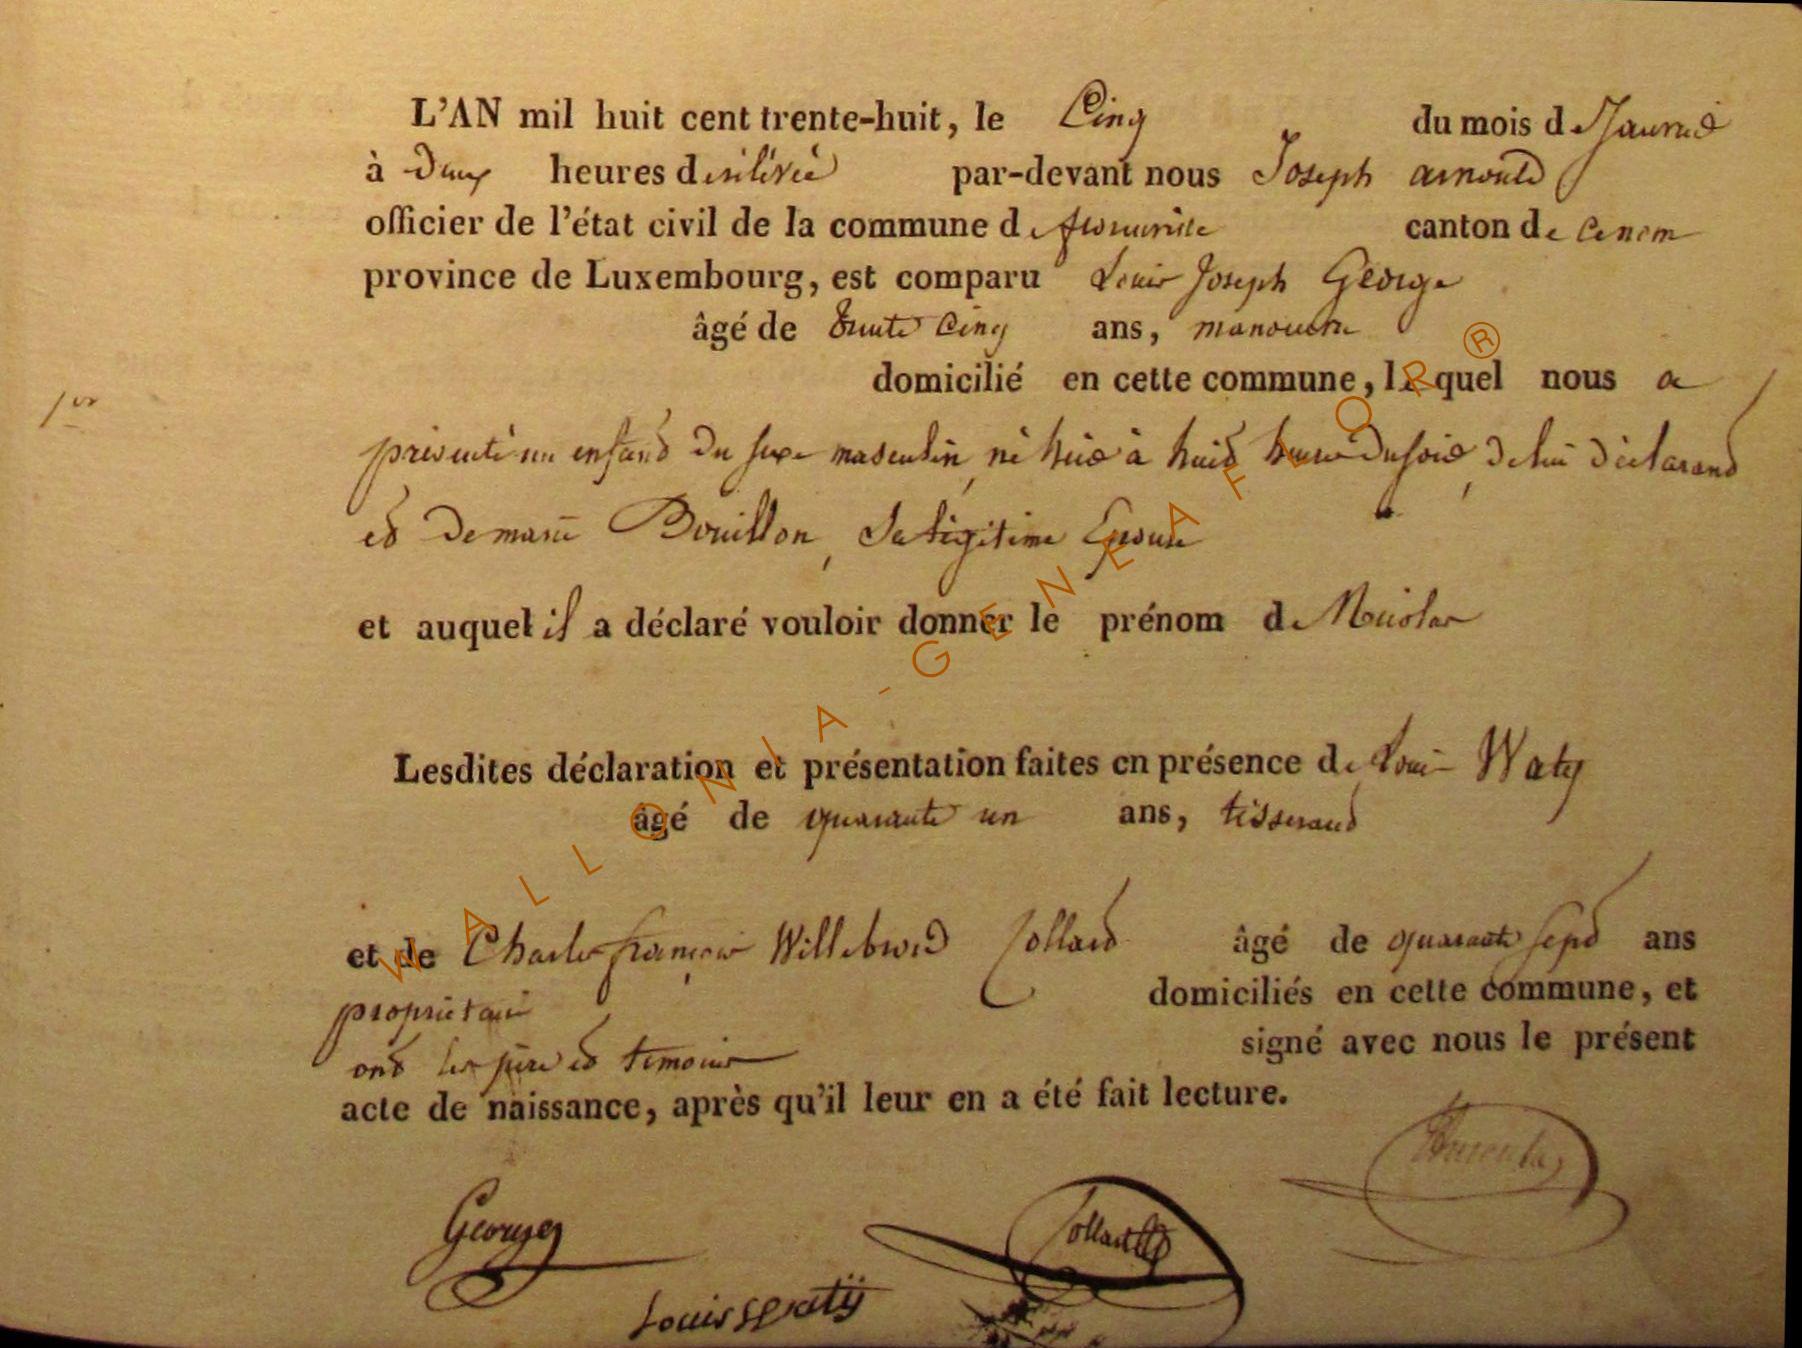 L'AN mil huit cent trente-huit, le Cinq du mois de Janvié
à Deux heures de rélévée par-devant nous Joseph arnould
officier de l'état civil de la commune de canton de
province de Luxembourg, est comparu Louis Joseph George
âgé de trente Cinq ans, manouvre
domicilié en cette commune, lequel nous a
1er
présenté un enfand du sexe masculin, né hié à huid heure du soié, de lui déclarand
ed de marie Bouillon, Sa légitime Epouse
et auquel il a déclaré vouloir donner le prénom de Nicolas
Lesdites déclaration et présentation faites en présence de Louis Waty
âgé de quarante un ans, tisserand
et de Charles françois Willebrord Collard âgé de quarante sepd ans
propriétair domiciliés en cette commune, et
ond les père ed temoins signé avec nous le présent
acte de naissance, après qu'il leur en a été fait lecture.
Georges Collard
Louis watÿ
WALLONIA-GENEAFLOR ®